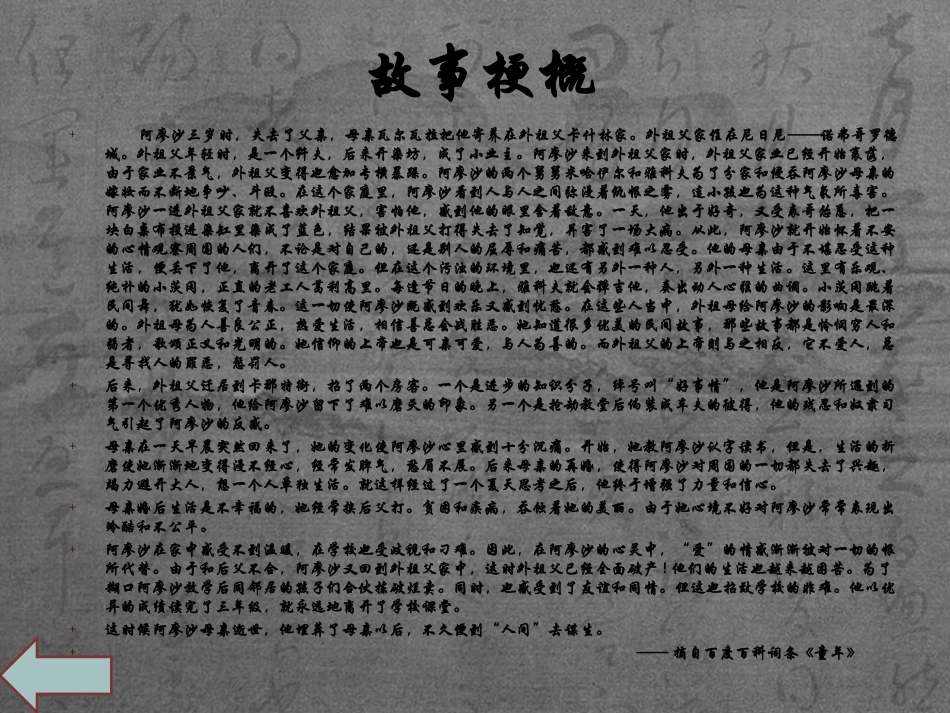 故事梗概
阿廖沙三岁时，失去了父亲，母亲瓦尔瓦拉把他寄养在外祖父卡什林家。外祖父家住在尼日尼——诺弗哥罗德
城。外祖父年轻时，是一个纤夫，后来开染坊，成了小业主。阿廖沙来到外祖父家时，外祖父家业已经开始衰落，
由于家业不景气，外祖父变得也愈加专横暴躁。阿廖沙的两个舅舅米哈伊尔和雅科夫为了分家和侵吞阿廖沙母亲的
嫁妆而不断地争吵、斗殴。在这个家庭里，阿廖沙看到人与人之间弥漫着仇恨之雾，连小孩也为这种气氛所毒害。
阿廖沙一进外祖父家就不喜欢外祖父，害怕他，感到他的眼里含着敌意。一天，他出于好奇，又受表哥怂恿，把一
块白桌布投进染缸里染成了蓝色，结果被外祖父打得失去了知觉，并害了一场大病。从此，阿廖沙就开始怀着不安
的心情观察周围的人们，不论是对自己的，还是别人的屈辱和痛苦，都感到难以忍受。他的母亲由于不堪忍受这种
生活，便丢下了他，离开了这个家庭。但在这个污浊的环境里，也还有另外一种人，另外一种生活。这里有乐观、
纯朴的小茨冈，正直的老工人葛利高里。每逢节日的晚上，雅科夫就会弹吉他，奏出动人心弦的曲调。小茨冈跳着
民间舞，犹如恢复了青春。这一切使阿廖沙既感到欢乐又感到忧愁。在这些人当中，外祖母给阿廖沙的影响是最深
的。外祖母为人善良公正，热爱生活，相信善总会战胜恶。她知道很多优美的民间故事，那些故事都是怜悯穷人和
弱者，歌颂正义和光明的。她信仰的上帝也是可亲可爱，与人为善的。而外祖父的上帝则与之相反，它不爱人，总
是寻找人的罪恶，惩罚人。
后来，外祖父迁居到卡那特街，招了两个房客。一个是进步的知识分子，绰号叫“好事情”，他是阿廖沙所遇到的
第一个优秀人物，他给阿廖沙留下了难以磨灭的印象。另一个是抢劫教堂后伪装成车夫的彼得，他的残忍和奴隶习
气引起了阿廖沙的反感。
母亲在一天早晨突然回来了，她的变化使阿廖沙心里感到十分沉痛。开始，她教阿廖沙认字读书，但是，生活的折
磨使她渐渐地变得漫不经心，经常发脾气，愁眉不展。后来母亲的再婚，使得阿廖沙对周围的一切都失去了兴趣，
竭力避开大人，想一个人单独生活。就这样经过了一个夏天思考之后，他终于增强了力量和信心。
母亲婚后生活是不幸福的，她经常挨后父打。贫困和疾病，吞蚀着她的美丽。由于她心境不好对阿廖沙常常表现出
冷酷和不公平。
阿廖沙在家中感受不到温暖，在学校也受歧视和刁难。因此，在阿廖沙的心灵中，“爱”的情感渐渐被对一切的恨
所代替。由于和后父不合，阿廖沙又回到外祖父家中，这时外祖父已经全面破产！他们的生活也越来越困苦。为了
糊口阿廖沙放学后同邻居的孩子们合伙拣破烂卖。同时，也感受到了友谊和同情。但这也招致学校的非难。他以优
异的成绩读完了三年级，就永远地离开了学校课堂。
这时候阿廖沙母亲逝世，他埋葬了母亲以后，不久便到“人间”去谋生。
—— 摘自百度百科词条《童年》